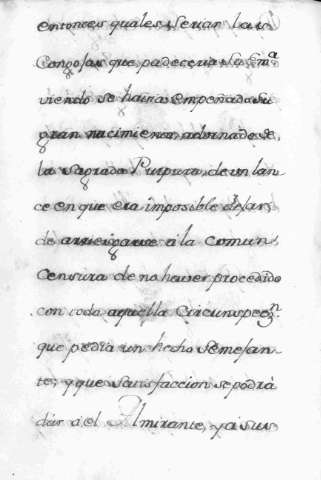 entonces quales seran las
Congojas que padecera Su Em.ª
viendo se haira empeñado su
gran nacimiento, adornado de
la sagrada Purpura, de un lan-
ce en que era imposible dejar
de arriesgarse a la comun
Censura de no haver procedido
con toda aquella Circunspecz.n
que pedia un hecho semejan-
te; y que satisfaccion se podrá
dar á el Almirante, y a sus